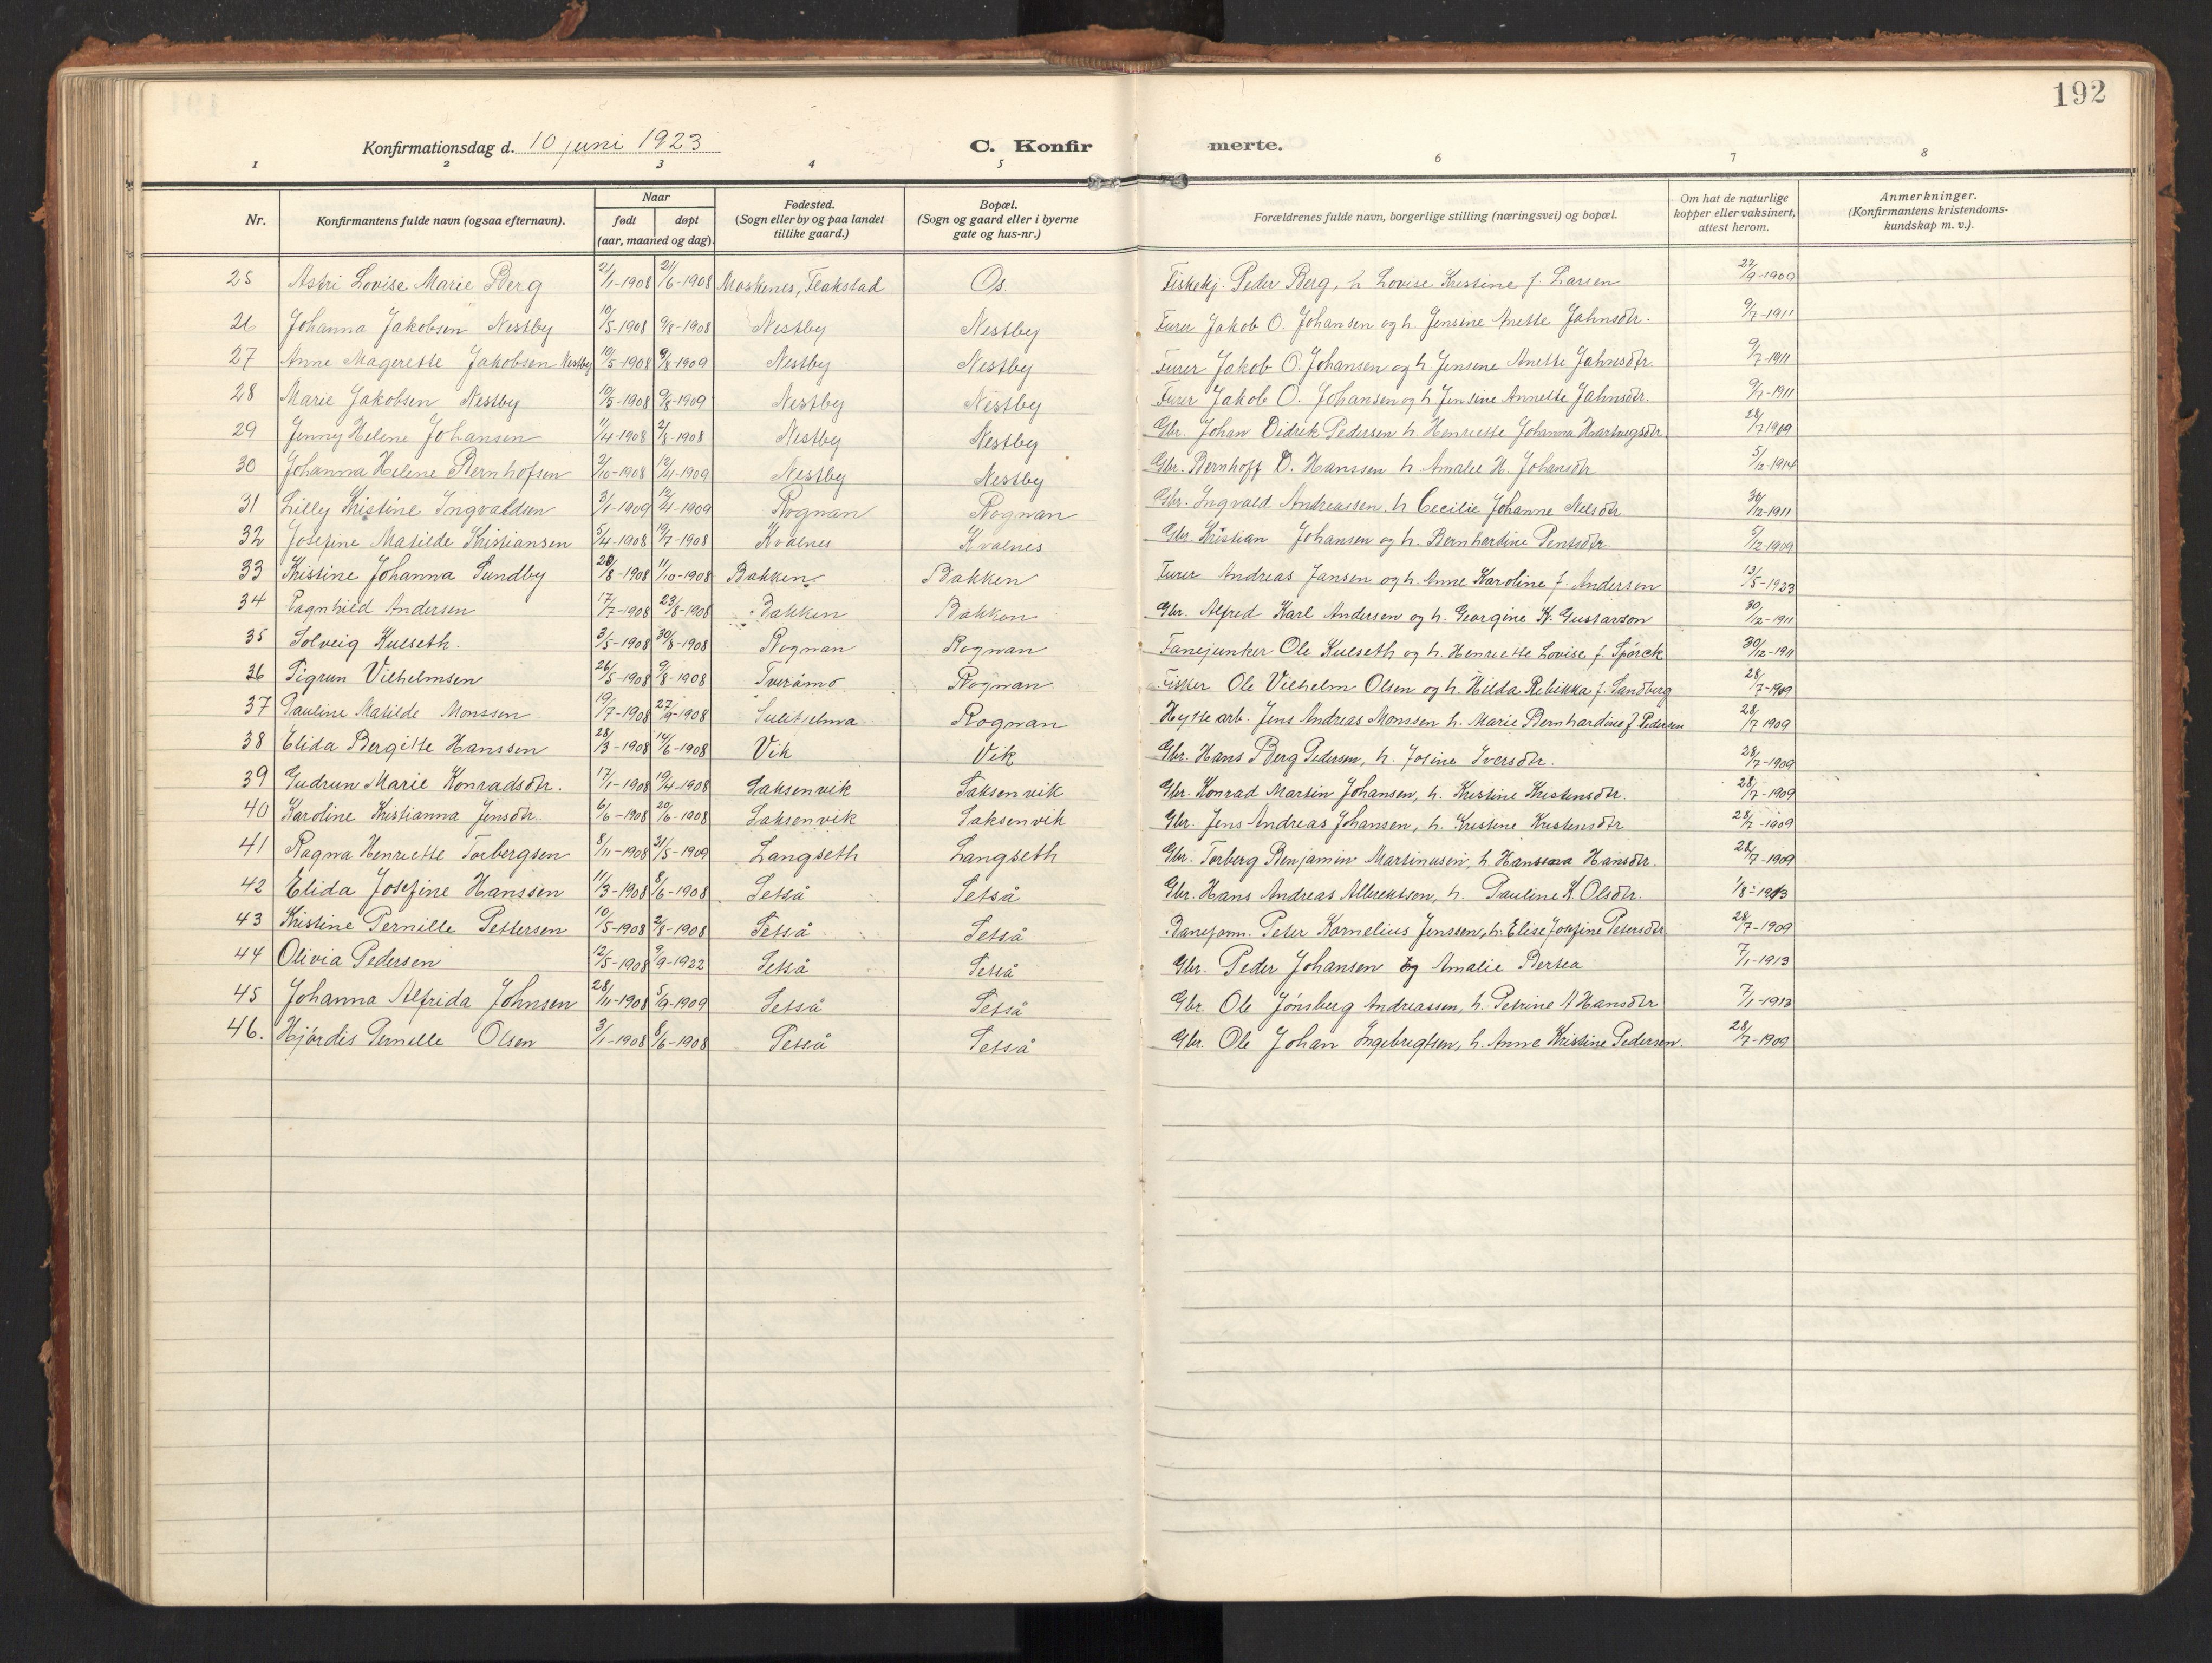 192
Konfirmationsdag d. 10 juni 1923
C. Konfirmerte.
1 2 3 4 5 6 7 8
Nr.
Konfirmantens fulde navn (ogsaa efternavn).
Naar
født
døpt
(aar, maaned og dag).
Fødested.
(Sogn eller by og paa landet
tillike gaard.)
Bopæl.
(Sogn og gaard eller i byerne
gate og hus-nr.)
Forældrenes fulde navn, borgerlige stilling (næringsvei) og bopæl.
Om hat de naturlige
kopper eller vaksinert,
attest herom.
Anmerkninger.
(Konfirmantens kristendoms-
kundskap m. v.).
25 Astri Lovise Marie Berg 2/1-1908 21/6-1908 Moskenes, Flakstad Os. Fiskekj. Peder Berg, h Lovise Kristine f. Larsen 27/9-1909
26 Johanna Jakobsen Nestby 10/5-1908 9/8-1908 Nestby Nestby Furer Jakob O. Johansen og h. Jensine Anette Jahnsdtr. 9/7-1911
27 Anne Magerette Jakobsen Nestby 10/5-1908 9/8-1909 Nestby Nestby Furer Jakob O. Johansen og h. Jensine Anette Jahnsdtr. 9/7-1911
28 Marie Jakobsen Nestby 10/5-1908 9/8-1909 Nestby Nestby Furer Jakob O. Johansen og h. Jensine Annette Jahnsdtr. 9/7-1911
29 Jenny Helene Johansen 11/4-1908 2/8-1908 Nestby Nestby Gbr. Johan Didrik Pedersen h. Henriette Johanna Hartvigsdtr. 28/7 1909
30 Johanna Helene Bernhofsen 2/10-1908 12/4-1909 Nestby Nestby Gbr. Bernhoff D. Hanssen h Amalie H. Johansdtr 5/12-1914
31 Lilly Kristine Ingvaldsen 3/1-1909 12/4-1909 Rognan Rognan Gbr. Ingvald Andreassen. h Cecilie Johanne Nilsdtr. 30/12-1911
32 Josefine Matilde Kristiansen 5/4-1908 19/7-1908 Kvalnes Kvalnes Gbr. Kristian Johansen og h. Bernhardine Pentsdtr. 5/12-1909
33 Kristine Johanna Sundby 28/8-1908 11/10-1908 Bakken Bakken Furer Andreas Jansen og h. Anne Karoline f. Andersen 13/5-1923
34 Ragnhild Andersen 17/7-1908 23/8-1908 Bakken Bakken Gbr. Alfred Karl Andersen og h. Georgine K. Gustavson 30/12-1911
35 Solveig Kulseth. 3/5-1908 30/8-1908 Rognan Rognan Fanejunker Ole Kulseth og h. Henriette Lovise f. Spørck 30/12-1911
36 Sigrun Vilhelmsen 26/5-1908 9/8-1908 Tveråmo Rognan Fisker Ole Vilhelm Olsen og h. Hilda Rebikka f. Sandberg 28/7-1909
37 Pauline Matilde Monssen 19/7-1908 27/9-1908 Sulitjelma Rognan Hytte arb. Jens Andreas Monssen h. Marie Bernhardine f. Pedersen 28/7 1909
38 Elida Bergitte Hanssen 28/3-1908 14/6-1908 Vik Vik Gbr. Hans Berg Pedersen, h. Josine Iversdtr. 28/7-1909
39 Gudrun Marie Konradsdtr. 17/1-1908 19/4-1908 Saksenvik Saksenvik Gbr. Konrad Martin Johansen, h. Kristine Kristensdtr. 28/7-1909
40 Karoline Kristianna Jensdtr. 6/6-1908 20/6-1908 Saksenvik Saksenvik Gbr. Jens Andreas Johansen, h. Kristine Kristensdtr 28/7-1909
41 Ragna Henriette Torbergsen 8/11-1908 31/5-1909 Langseth Langseth Gbr. Torberg Benjamin Martinusen, h. Hansina Hansdtr. 28/7-1909
42 Elida Josefine Hanssen 11/3-1908 8/6-1908 Setså Setså Gbr. Hans Andreas Albrektsen, h. Pauline K. Olsdtr. 1/8-1913
43 Kristine Pernille Pettersen 10/5-1908 2/8-1908 Setså Setså Baneform. Peter Kornelius Jenssen, h. Elise Josefine Petersdtr 28/7-1909
44 Olivia Pedersen 12/5-1908 9/9-1922 Setså Setså Gbr. Peder Johansen og Amalie Bertea 7/1-1913
45 Johanna Alfrida Johnsen 28/11-1908 5/9-1909 Setså Setså Gbr. Ole Jønsberg Andreassen, h. Petrine A Hansdtr 7/1-1913
46. Hjørdis Pernille Olsen 3/1-1908 8/6-1908 Setså Setså Gbr. Ole Johan Ingebrigtsen, h. Anne Kristine Pedersen. 28/7-1909